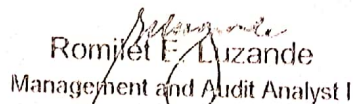 Romilet E. Luzande
Management and Audit Analyst I